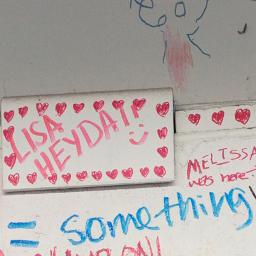 LISA
HEYDAT!
MELISSA
was here!
= something